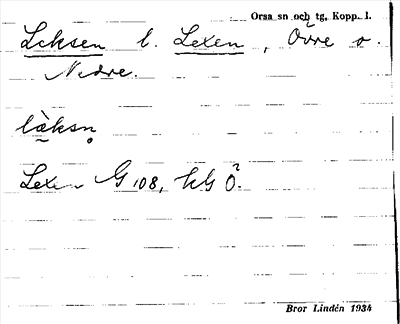 Orsa sn och tg, Kopp. l.
Leksen l. Lexen, Övre o.
Nedre.
làksn̥
Lexen G 108, hG Ö.
Bror Lindén 1934